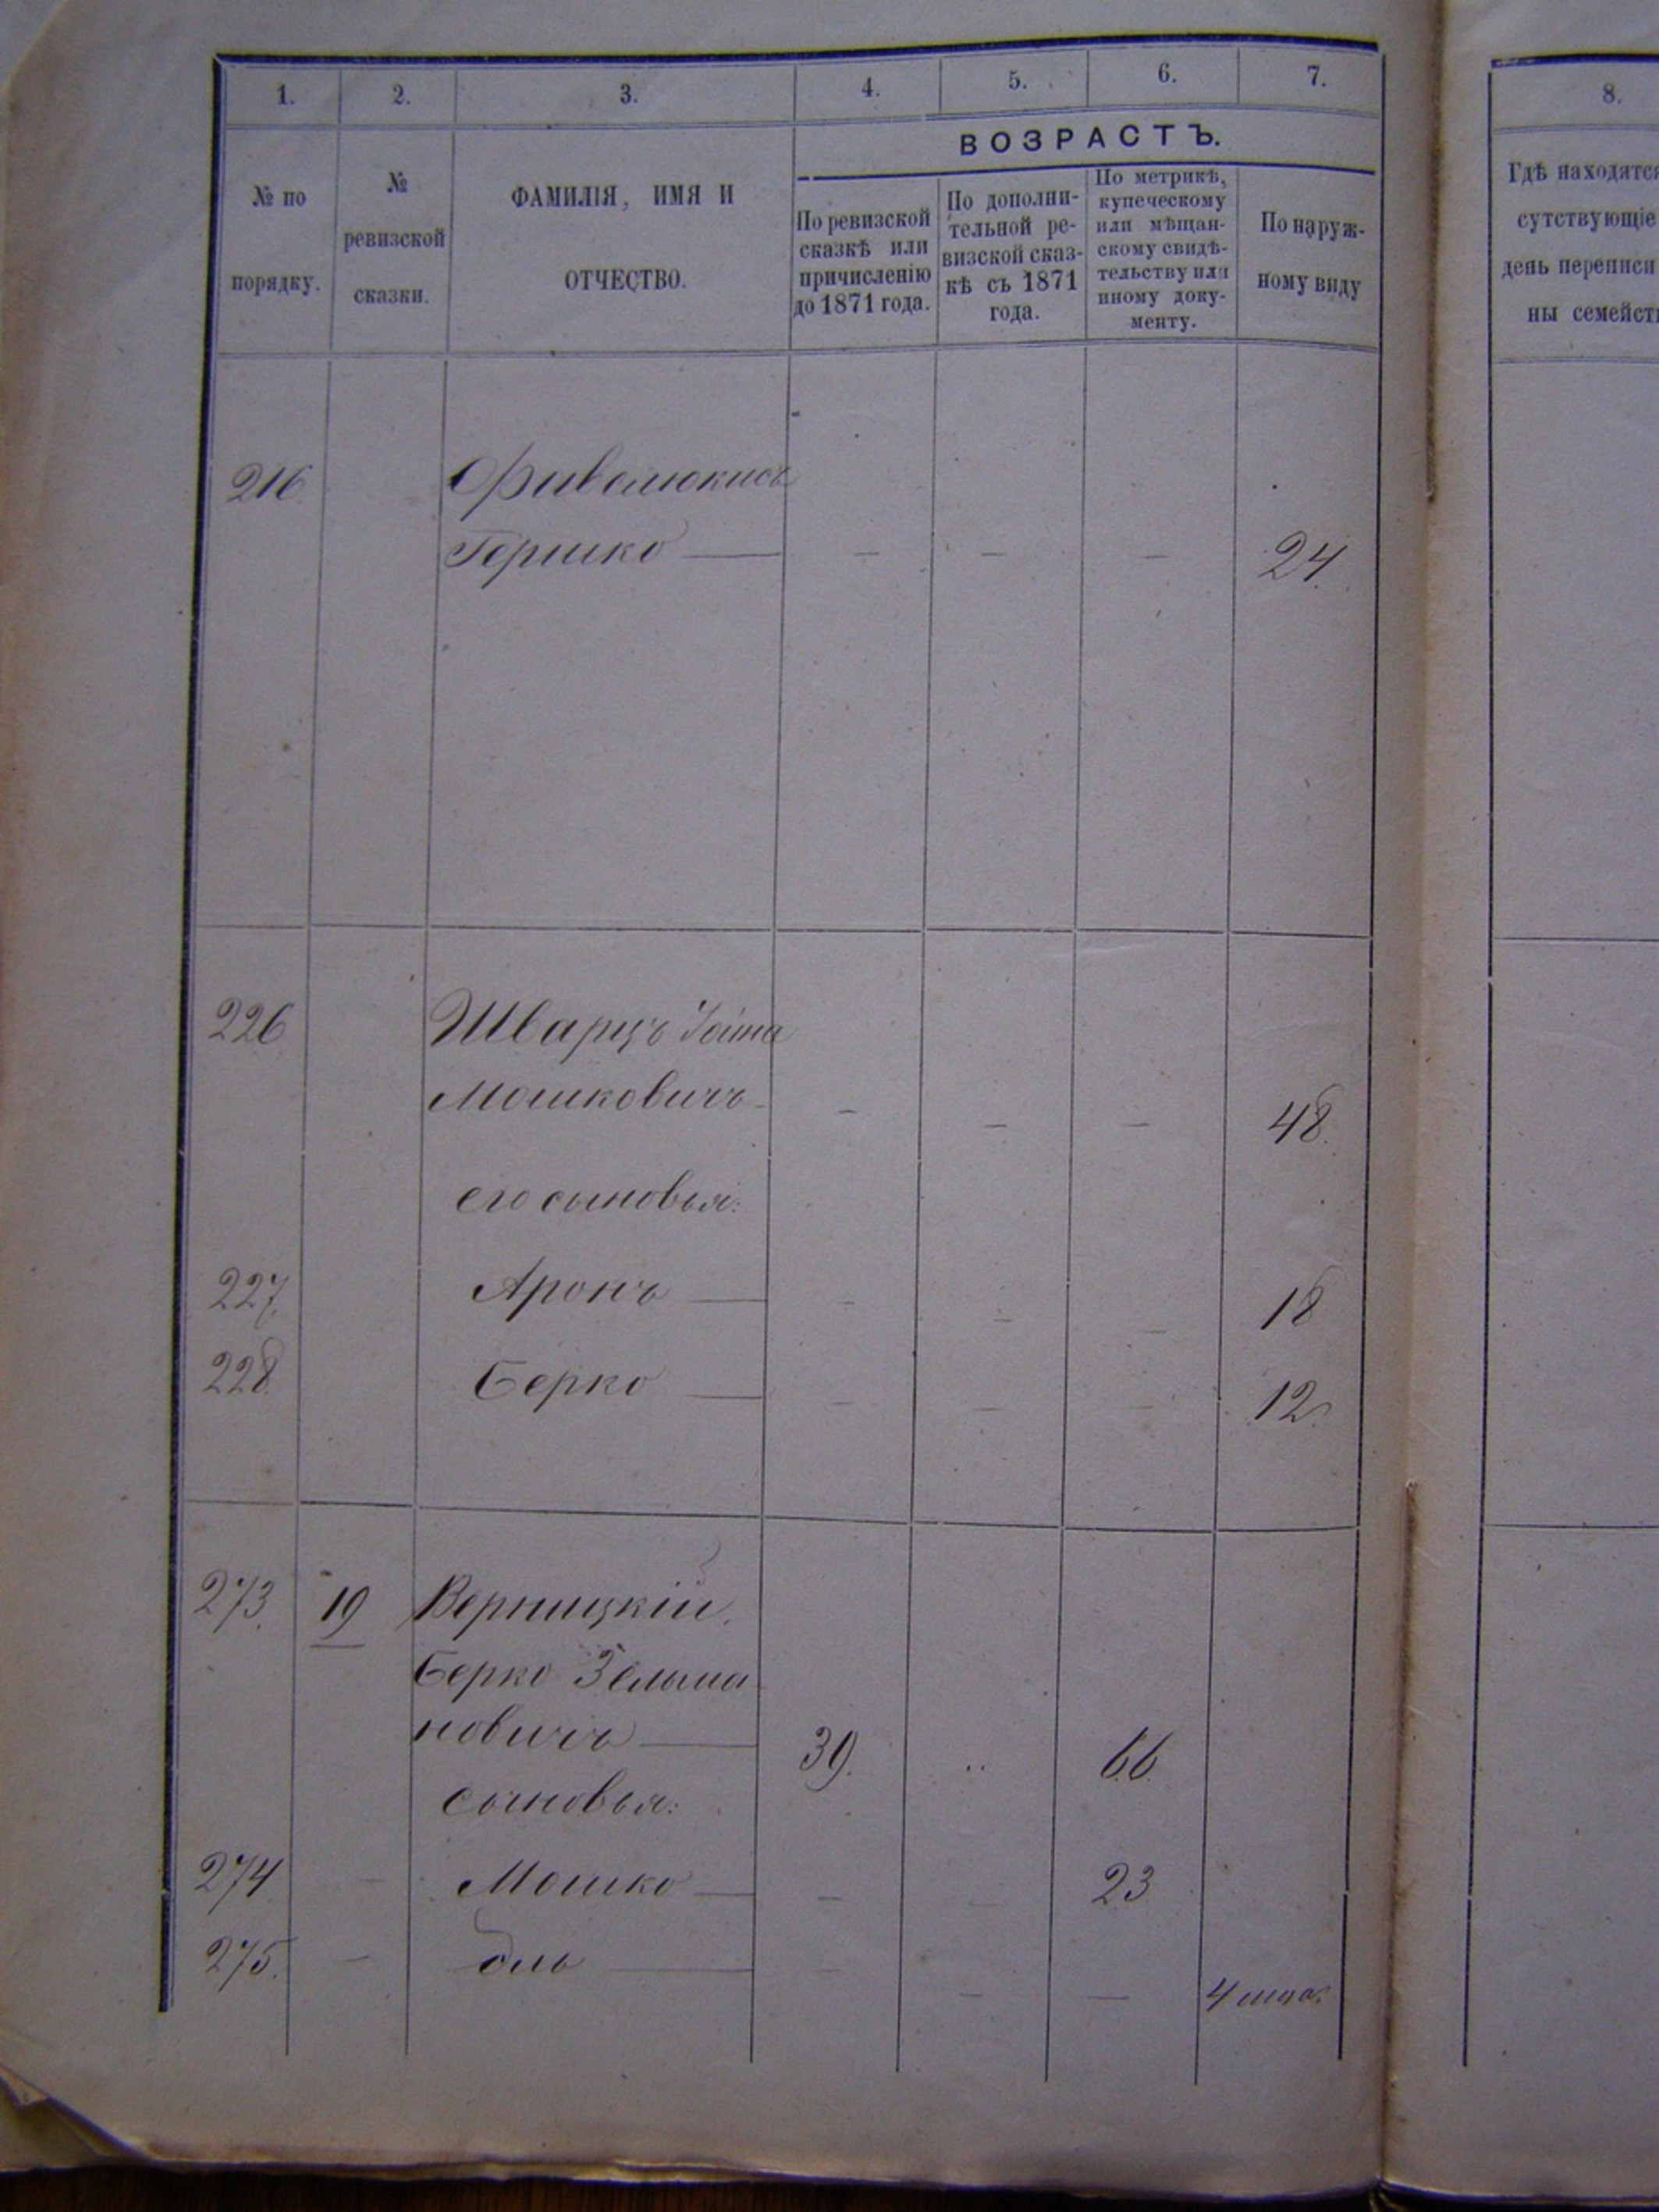 1. 2. 3. 4. 5. 6. 7.
ВОЗРАСТЪ.
№ по
порядку.
№
ревизской
сказки.
ФАМИЛІЯ, ИМЯ И
ОТЧЕСТВО.
По ревизской
сказкѣ или
причисленію
до 1871 года.
По дополни-
тельной ре-
визской сказ-
кѣ съ 1871
года.
По метрикѣ,
купеческому
или мѣщан-
скому свидѣ-
тельству или
иному доку-
менту.
По наруж-
ному виду
216
Гершко — — — — 24.
226 Шварцъ
Мошковичъ — — — 48.
его сыновья:
227. Аронъ — — — — 18
228. Берко — — — — 12.
273. 19 Верницкій.
Берко Зельма
новичъ — 39. .. 66.
сыновья:
274 — Мошко — — 23
275. — — — — — 4
8.
Гдѣ находятся
сутствующіе
день переписи
ны семейст